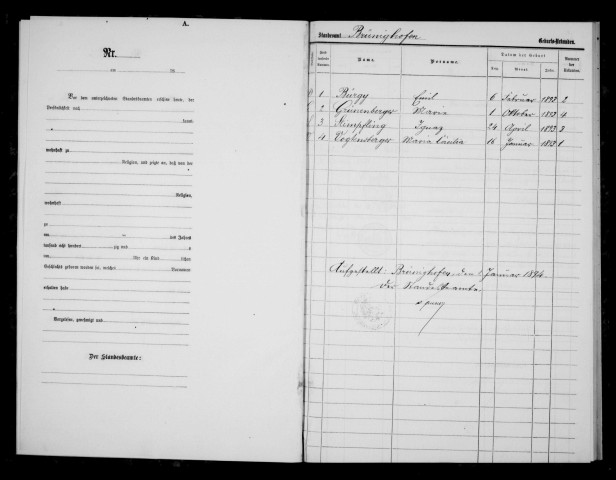 A.
Nr.
am 18
Vor dem unterzeichneten Standesbeamten erschien heute, der
Persönlichkeit nach
kannt,
wohnhaft zu
Religion, und zeigte an, daß von der
Religion,
wohnhaft
zu
am ten Jahres
tausend acht hundert zig und
um Uhr ein Kind lichen
Geschlecht geboren worden sei, welches Vornamen
erhalten habe
Vorgelesen, genehmigt und
Der Standesbeamte:
Standesamt Brünighofen Geburts-Urkunden.
Name. Vorname. Datum der Geburt Nummer der Urkunden.
Tag. Monat Jahr.
1 Bürgy Emil 6 Februar 1893 2
2 Grünenberger Maria 1 Oktober 1893 4
3 Ignaz 24 April 1893 3
4 Maria Cäcilia 16 Januar 1893 1
Aufgestellt: Brünighofen, den 1. Januar 1894.
Der Standesbeamte